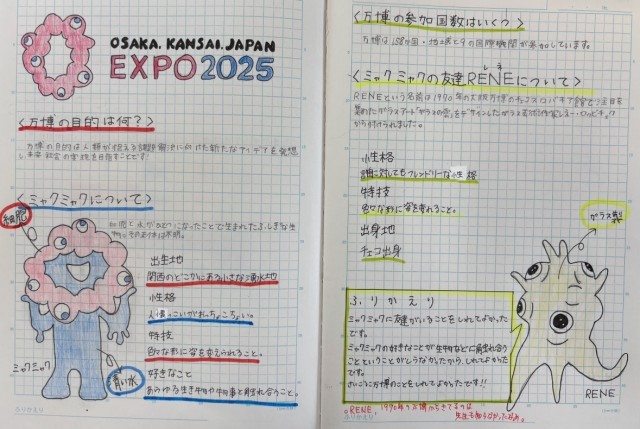 OSAKA, KANSAI, JAPAN
EXPO2025
〈万博の目的は何?〉
万博の目的は人類が抱える課題解決に向けた新たなアイデアを発想し
未来社会の実現を目指すことです。
〈ミャクミャクについて〉
細胞
細胞と水がひとつになったことで生まれたふしぎな生き
物。その正体は不明。
出生地
関西のどこかにある小さな湧水地
性格
人懐っこいがおっちょこちょい。
特技
色々な形に姿を変えられること。
好きなこと
あらゆる生き物や物事と触れ合うこと。
ミャクミャク
青い水
ふりかえり
〈万博の参加国数はいくつ〉
万博は158か国・地域と9の国際機関が参加しています。
〈ミャクミャクの友達RENEについて〉
レネ
RENEという名前は1970年の大阪万博のチェコスロバキア館で注目を
集めたガラスアート「ガラスの雲」をデザインしたガラス芸術作家レネ・ロウビーチェク
から付けられました。
性格
誰に対してもフレンドリーな性格
特技
色々な形に姿を変れること。
出身地
チェコ出身
ガラス製
ふりかえり
ミャクミャクに友達がいることをしれてよかった
です。
ミャクミャクの好きなことが生物などに触れ合う
ことということがしらなかったから、しれてよかった
です。
さいごに万博のことをしれてよかったです!!
RENE
RENE、1970年の万博から
先生も知らなかったなぁ